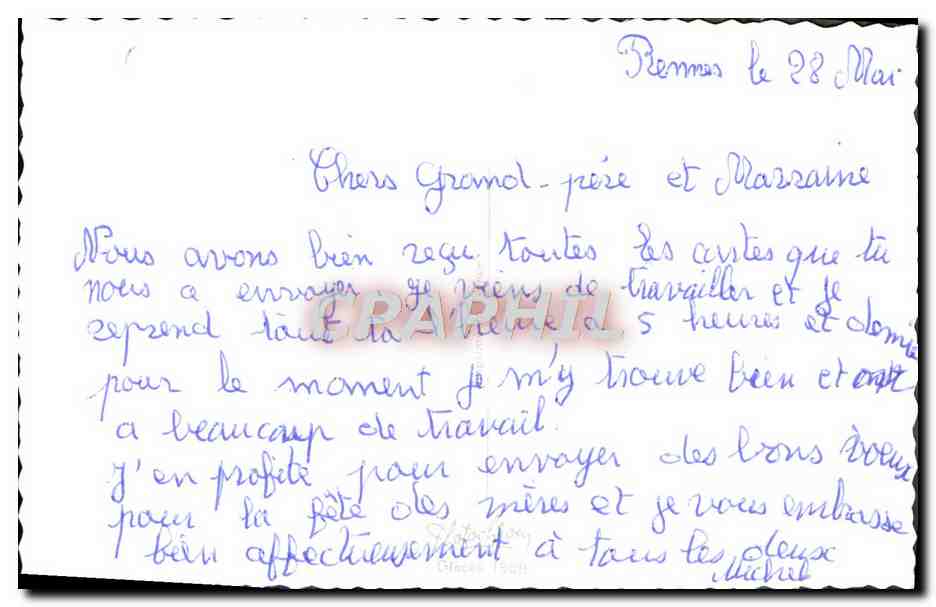 Rennes le 28 Mai
Chers Grand-père et Marraine
Nous avons bien reçu toutes les cartes que tu
nous a envoyer. Je viens de travailler et je
reprend tout à l'heure à 5 heures et demie
pour le moment je m'y trouve bien et ont
a beaucoup de travail.
J'en profite pour envoyer des bons voeux
pour la fête des mères et je vous embrasse
bien affectueusement à tous les deux
Michel
CPARHIL